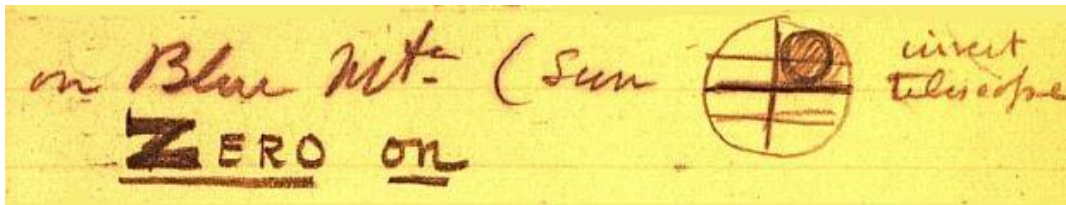 on Blue Mtn (Sun
invert
telescope
ZERO on